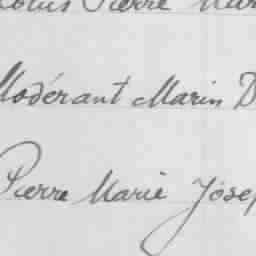 Louis Pierre Mar
Modérant Marin D
Pierre Marie Josep